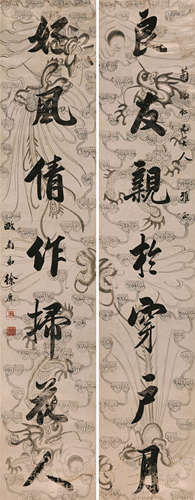 良友親於穿戶月
好風倩作掃花人